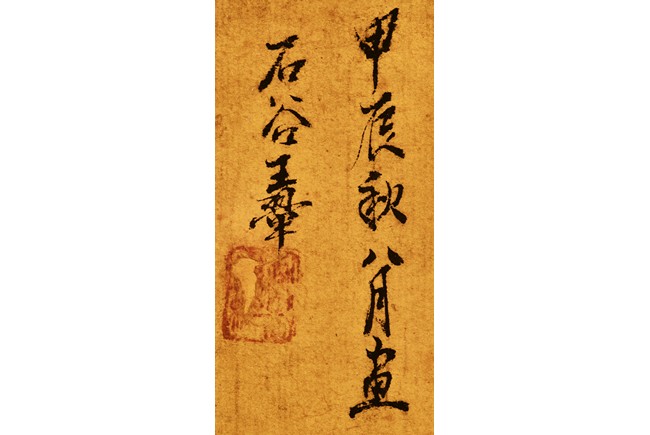 甲辰秋八月画
石谷王翬